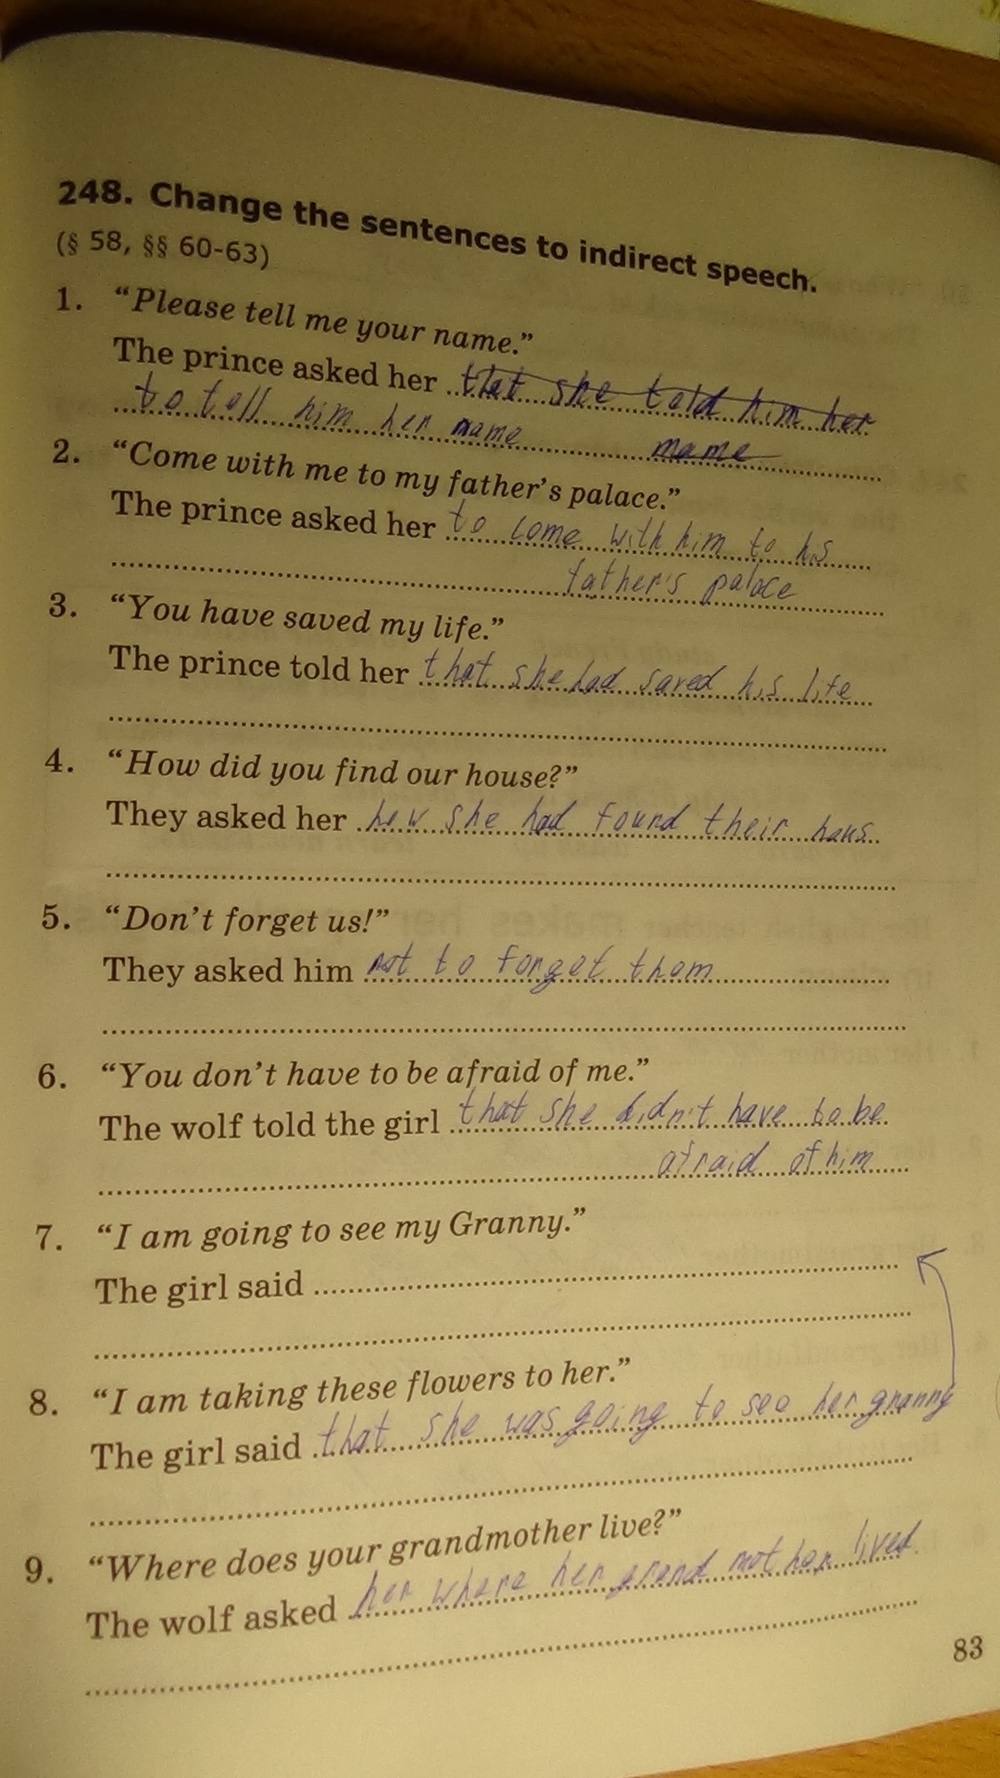 248. Change the sentences to indirect speech.
(§ 58, §§ 60-63)
1. “Please tell me your name.”
The prince asked her that she told him her
to tell him her name name
2. “Come with me to my father’s palace.”
The prince asked her to come with him to his
father's palace
3. “You have saved my life.”
The prince told her that she had saved his life
4. “How did you find our house?”
They asked her how she had found their hous
5. “Don’t forget us!”
They asked him not to forget them
6. “You don’t have to be afraid of me.”
The wolf told the girl that she didn't have to be
afraid of him
7. “I am going to see my Granny.”
The girl said
8. “I am taking these flowers to her.”
The girl said that she was going to see her granny
9. “Where does your grandmother live?”
The wolf asked her where her grand mother lived
83